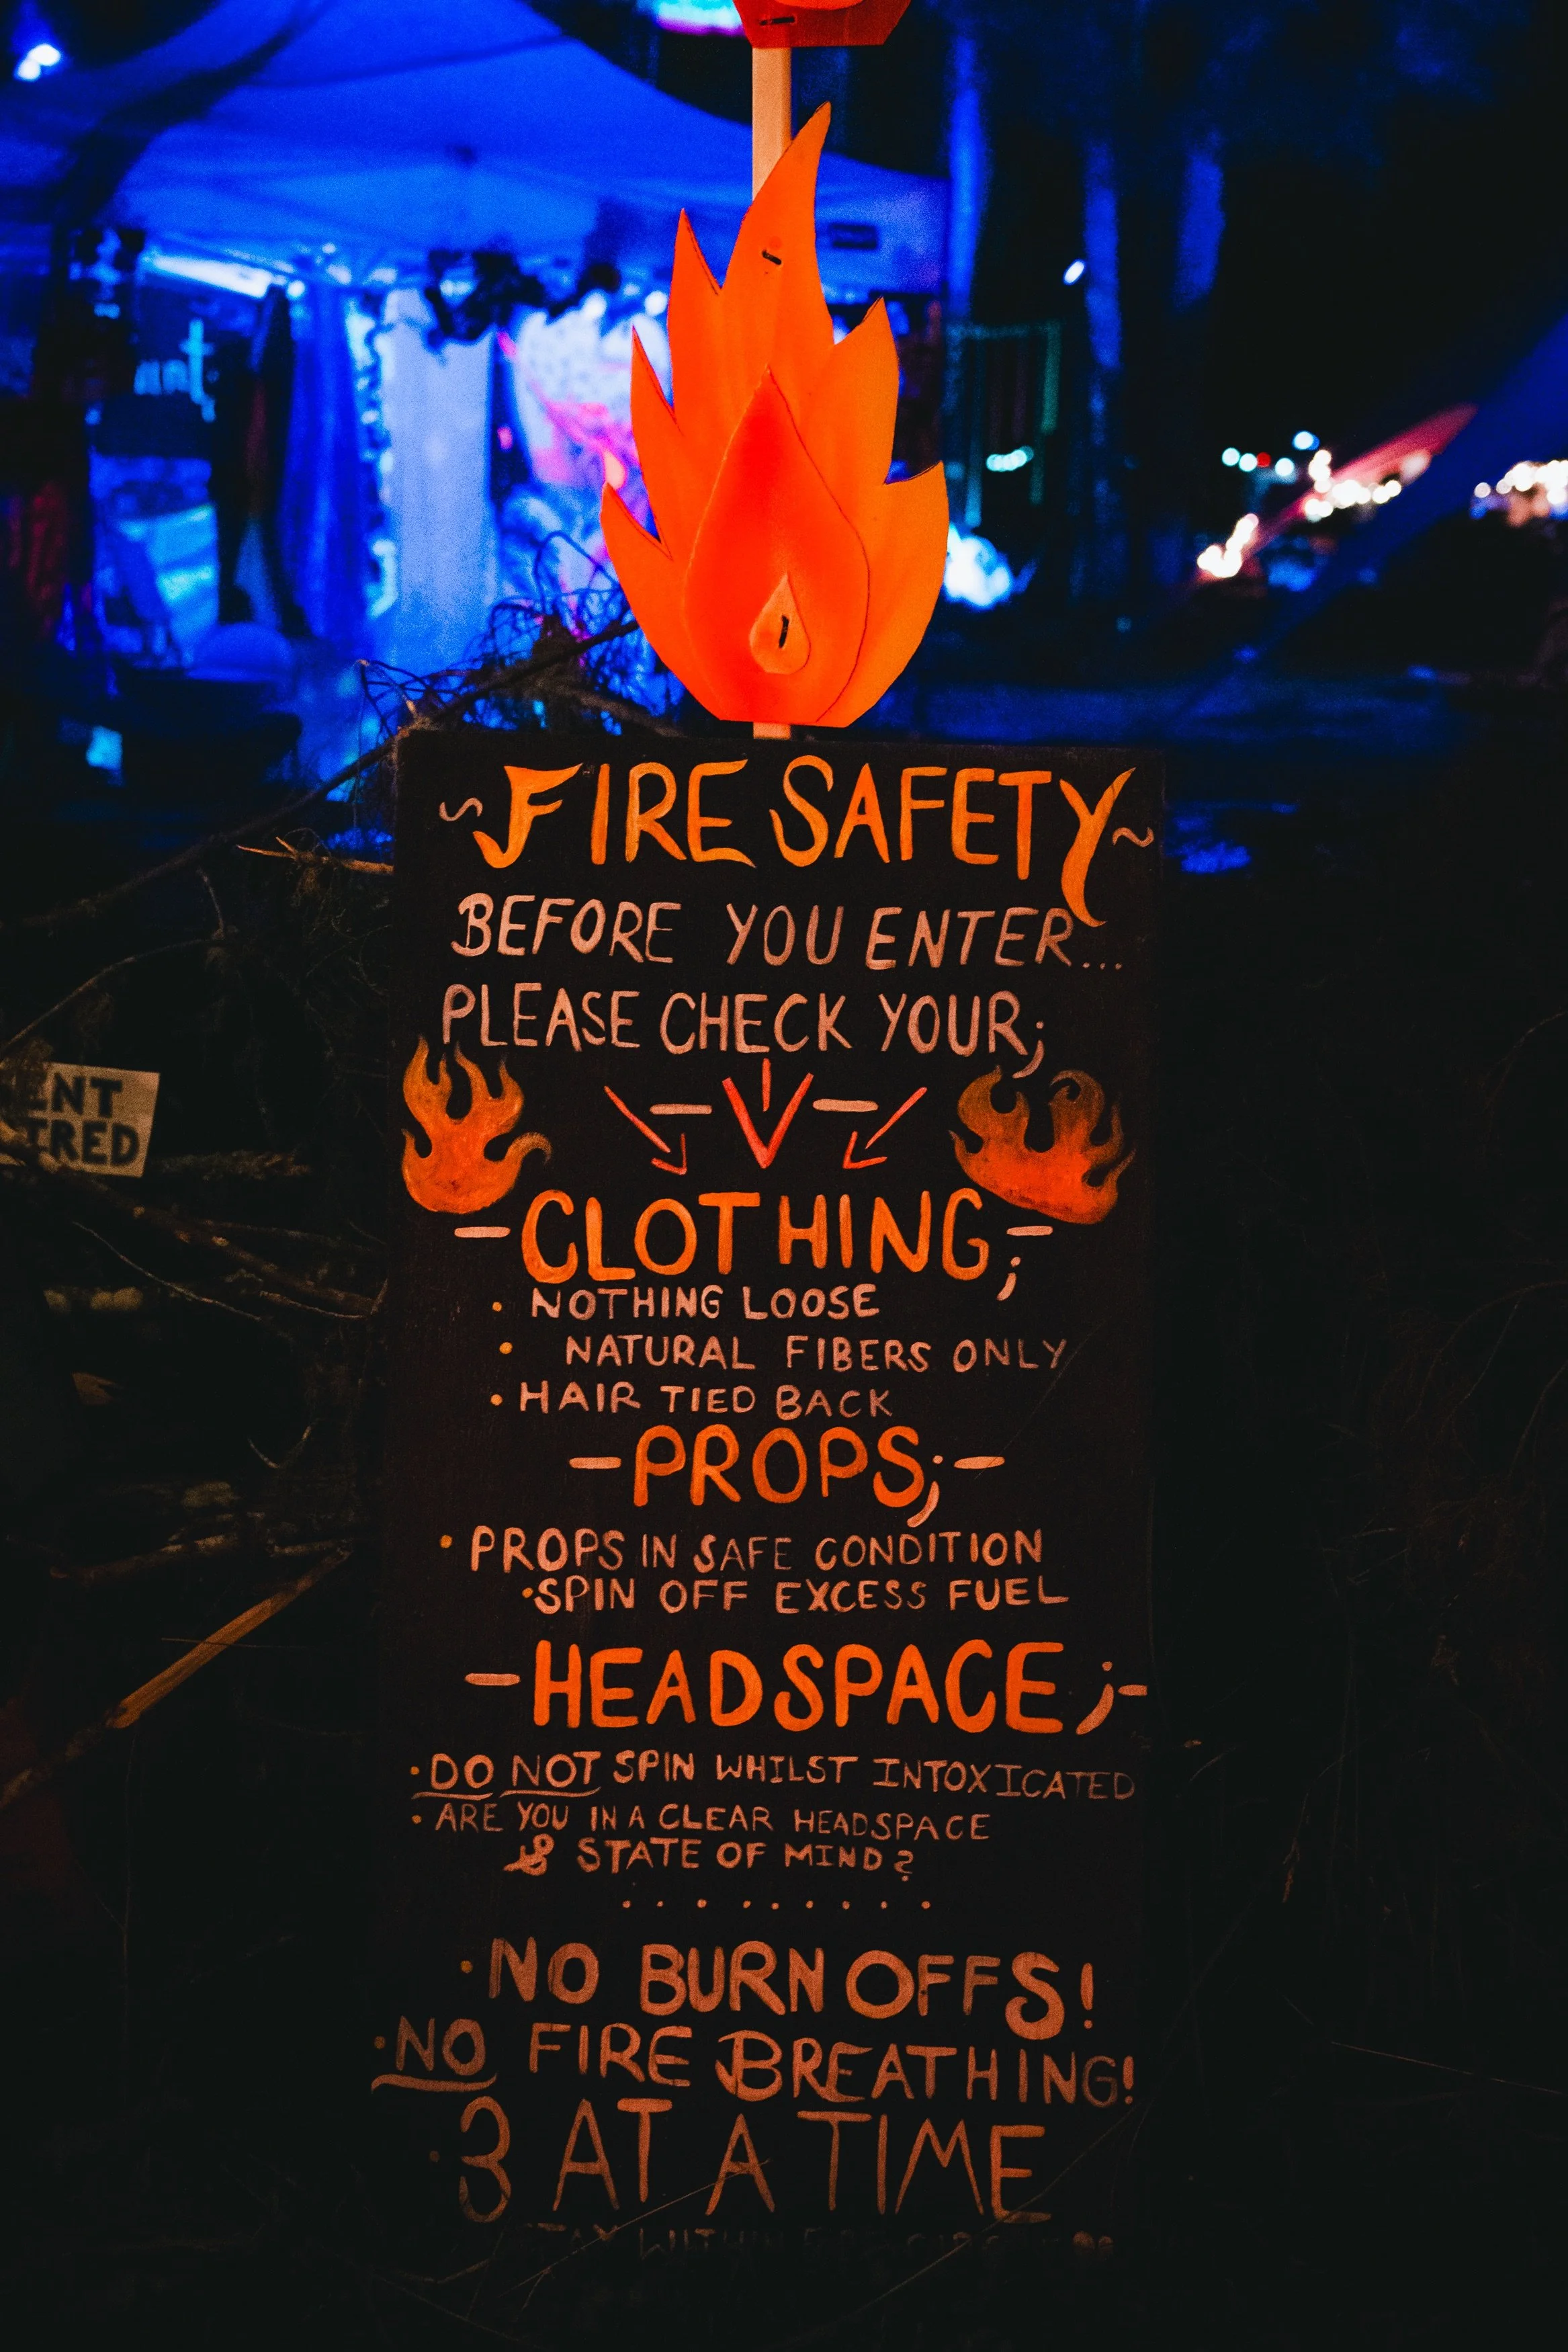 ~FIRE SAFETY~
BEFORE YOU ENTER...
PLEASE CHECK YOUR;
-CLOTHING;-
• NOTHING LOOSE
• NATURAL FIBERS ONLY
• HAIR TIED BACK
-PROPS;-
• PROPS IN SAFE CONDITION
• SPIN OFF EXCESS FUEL
-HEADSPACE;-
• DO NOT SPIN WHILST INTOXICATED
• ARE YOU IN A CLEAR HEADSPACE
& STATE OF MIND?
.........
• NO BURN OFFS!
• NO FIRE BREATHING!
• 3 AT A TIME
WITHIN
ENT
IRED